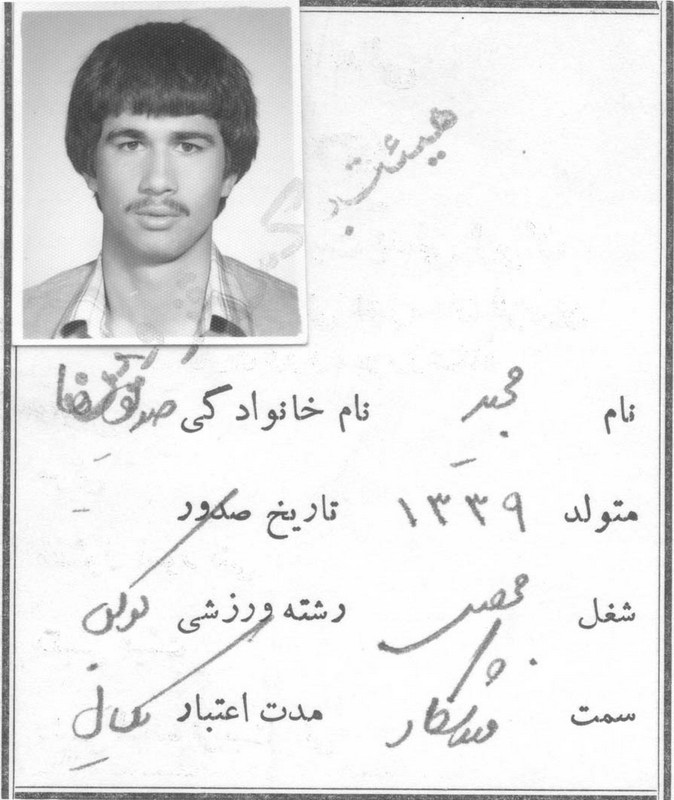 هیئت
نام مجید نام خانوادگی
متولد ۱۳۳۹ تاریخ صدور -
شغل محصل رشته ورزشی
سمت ورزشکار مدت اعتبار یکسال